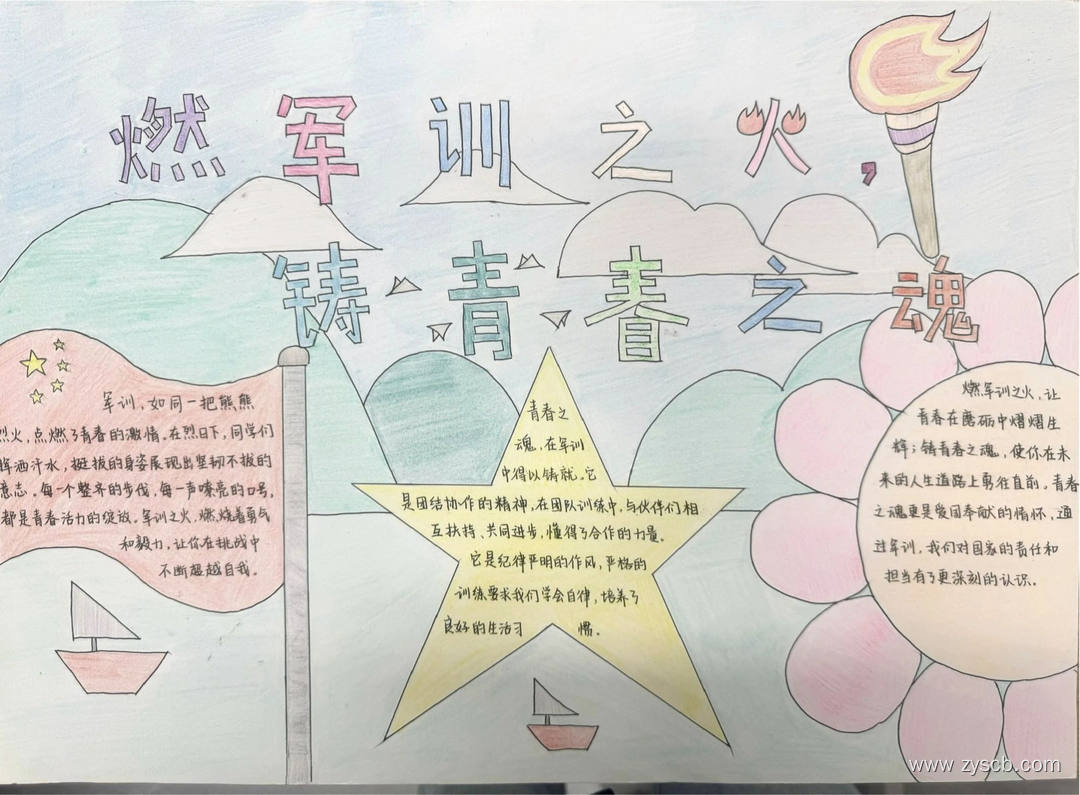 燃军训之火，
铸青春之魂
军训，如同一把熊熊
烈火，点燃了青春的激情。在烈日下，同学们
挥洒汗水，挺拔的身姿展现出坚韧不拔的
意志。每一个整齐的步伐，每一声嘹亮的口号，
都是青春活力的绽放。军训之火，燃烧着勇气
和毅力，让你在挑战中
不断超越自我。
青春之
魂，在军训
中得以铸就。它
是团结协作的精神，在团队训练中，与伙伴们相
互扶持、共同进步，懂得了合作的力量。
它是纪律严明的作风，严格的
训练要求我们学会自律，培养了
良好的生活习惯。
燃军训之火，让
青春在磨砺中熠熠生
辉；铸青春之魂，使你在未
来的人生道路上勇往直前。青春
之魂更是爱国奉献的情怀，通
过军训，我们对国家的责任和
担当有了更深刻的认识。
www.zyscb.com